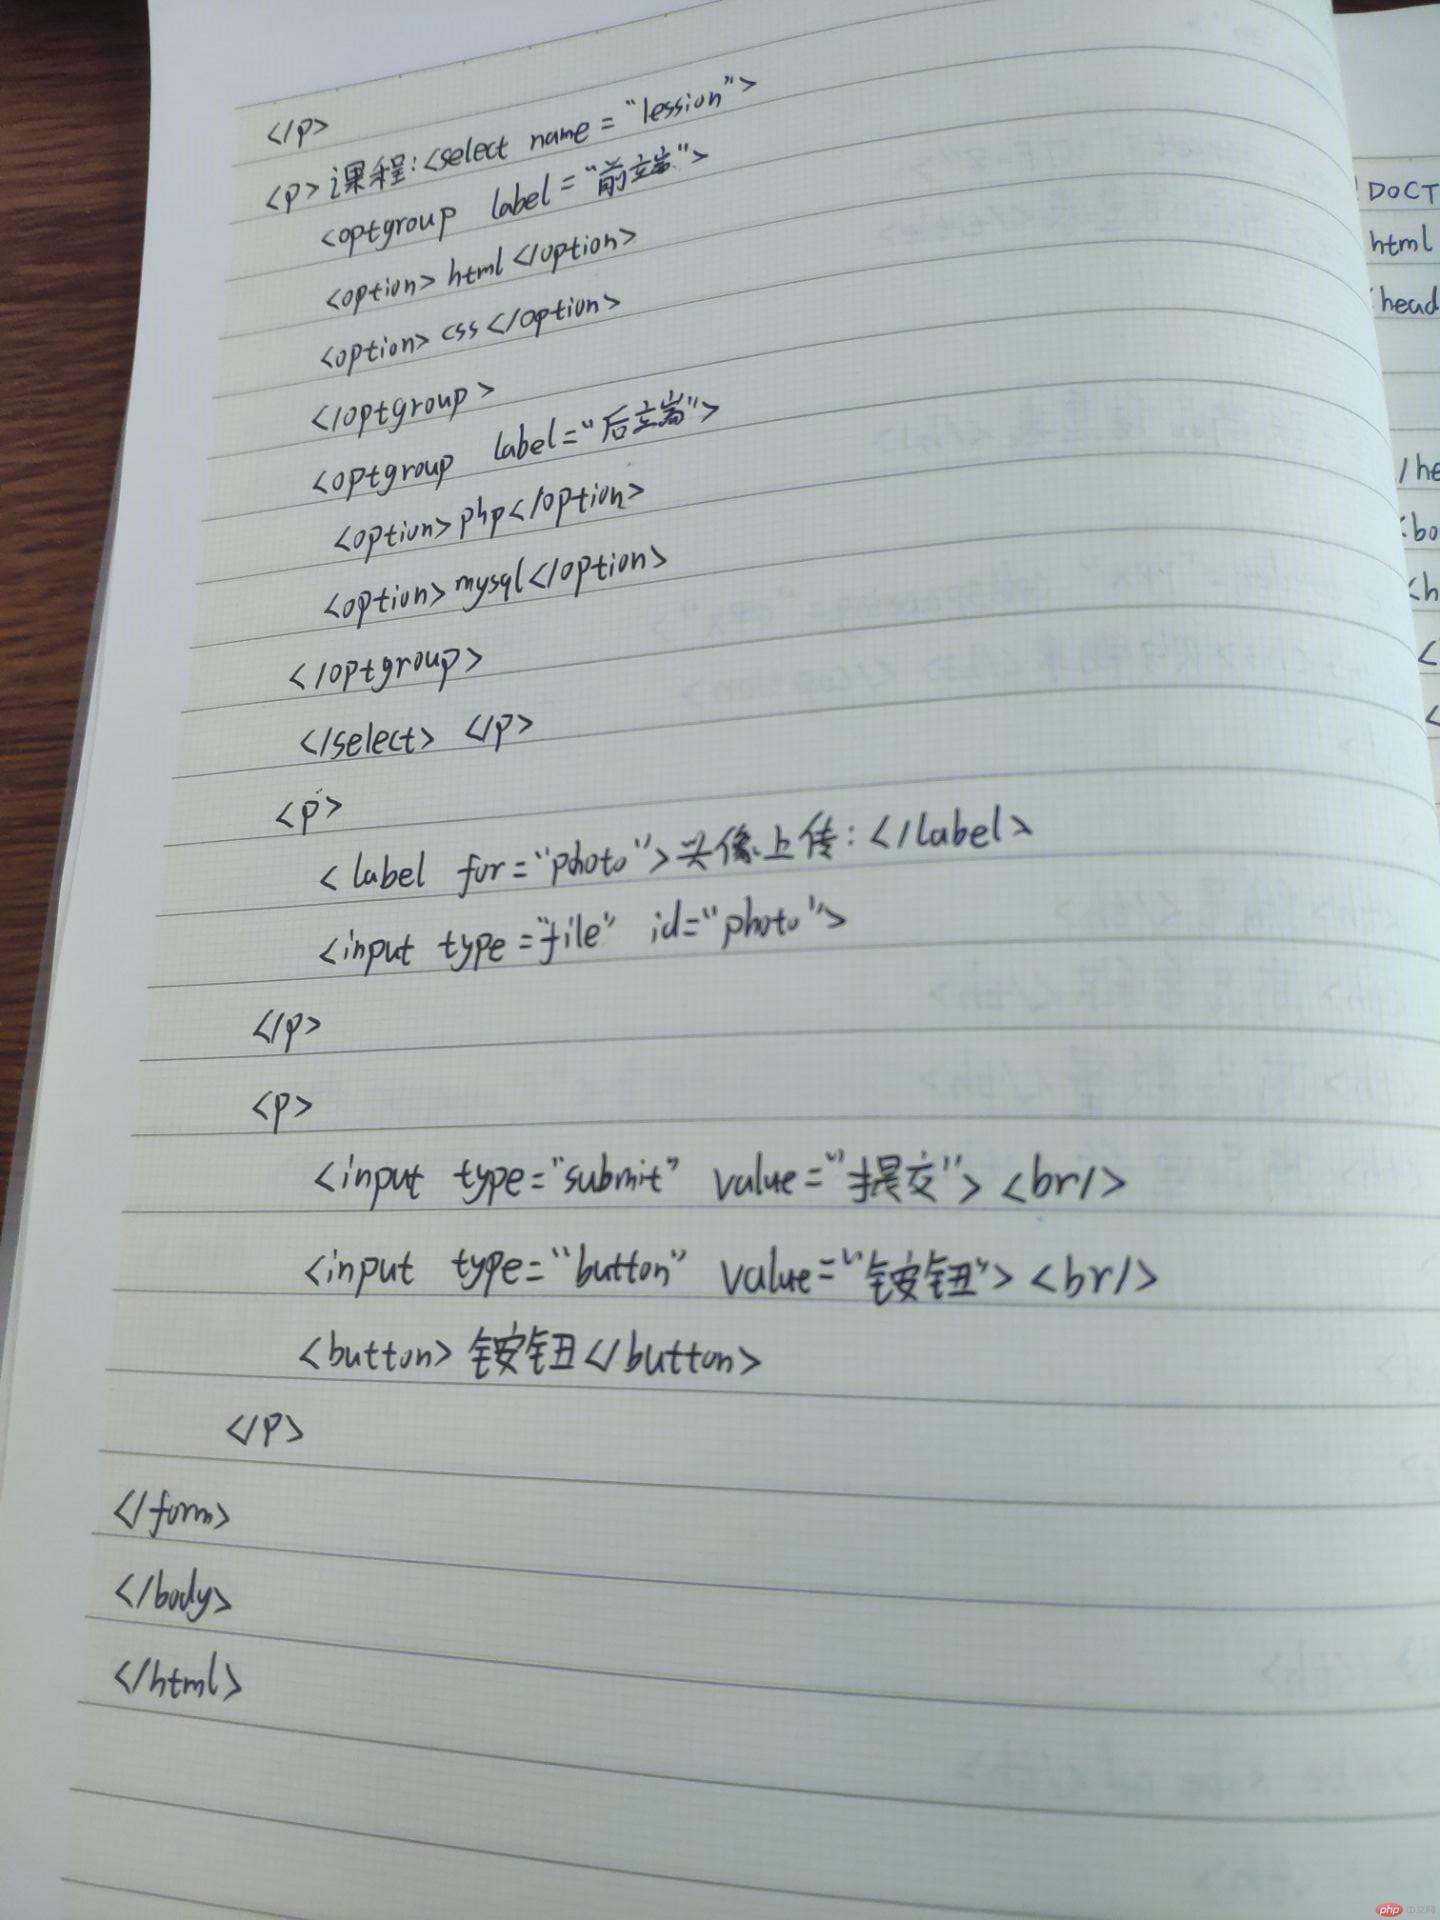 </p>
<p>课程:<select name="lession">
<optgroup label="前端">
<option>html</option>
<option>css</option>
</optgroup>
<optgroup label="后端">
<option>php</option>
<option>mysql</option>
</optgroup>
</select> </p>
<p>
<label for="photo">头像上传:</label>
<input type="file" id="photo">
</p>
<p>
<input type="submit" value="提交"><br/>
<input type="button" value="铵钮"><br/>
<button>铵钮</button>
</p>
</form>
</body>
</html>
DOCT
html
head
/he
<bo
<h
<
<
php 中文网